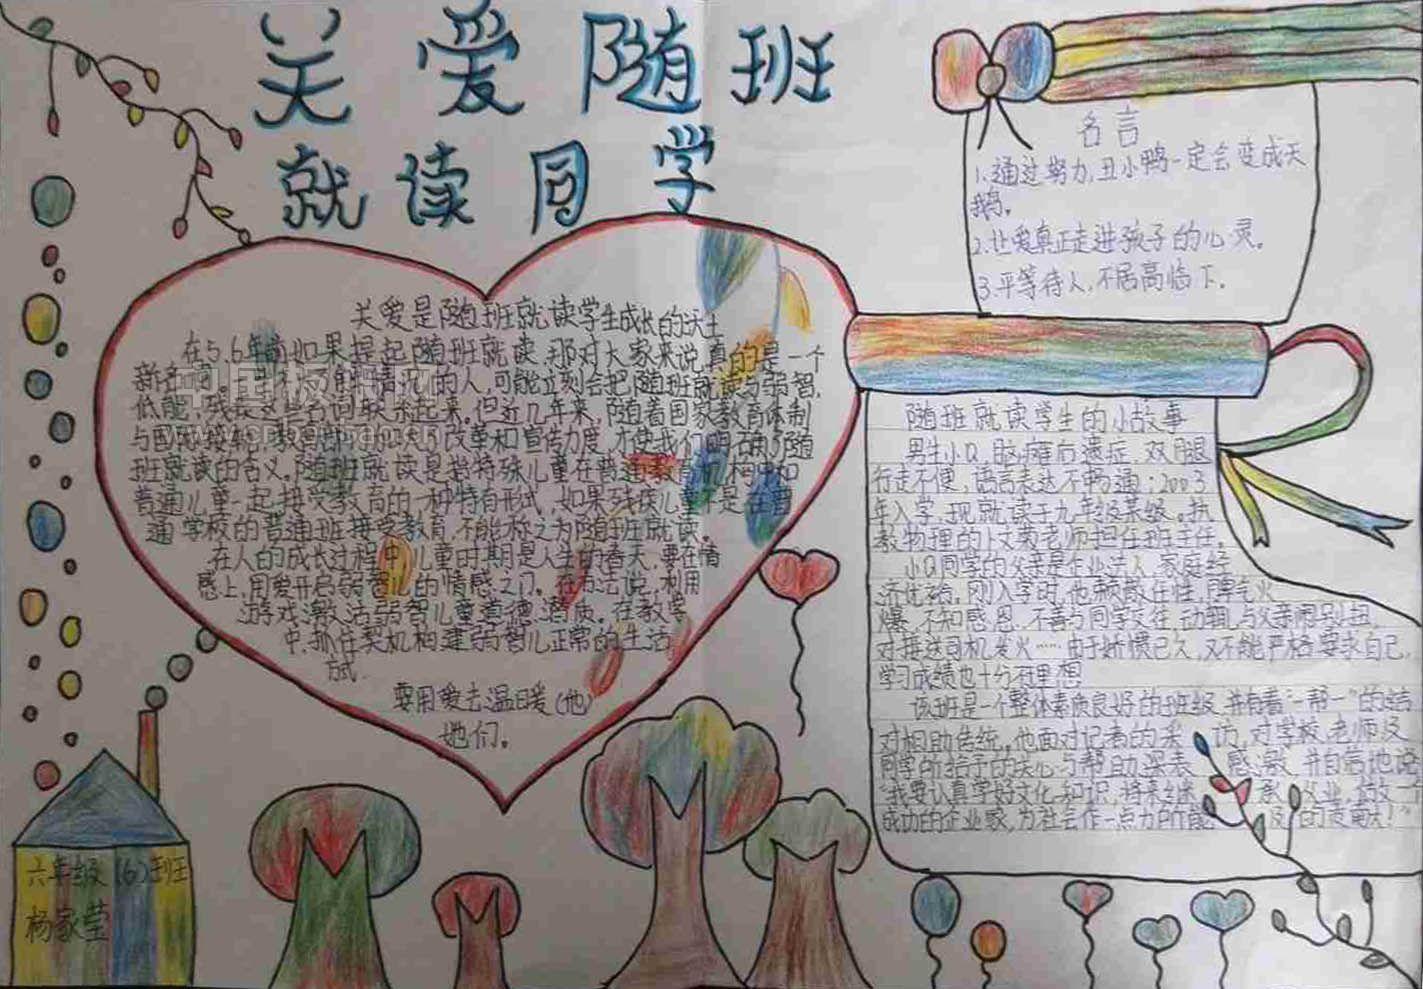 关爱随班
就读同学
名言
1.通过努力,丑小鸭一定会变成天
鹅。
2.让爱真正走进孩子的心灵。
3.平等待人,不居高临下。
关爱是随班就读学生成长的沃土
在5.6年前如果提起随班就读,那对大家来说真的是一个
新名词。的人,可能立刻会把随班就读与弱智,
低能,残疾这些名词联系起来。但近几年来,随着国家教育体制
与国际接轨,教育部门加大了改革和宣传力度,才使我们明确了随
班就读的含义。随班就读是指特殊儿童在普通教育机构中和
普通儿童一起接受教育的一种特有形式,如果残疾儿童不是在普
通学校的普通班接受教育,不能称之为随班就读。
在人的成长过程中,儿童时期是人生的春天,要在情
感上,用爱开启弱智儿的情感之门。在方法说,利用
游戏激活弱智儿童道德潜质。在教学
中,抓住契机构建弱智儿正常的生活
式.
要用爱去温暖(他)
她们。
随班就读学生的小故事
男生小Q,脑瘫后遗症,双腿
行走不便,语言表达不畅通;2003
年入学,现就读于九年级某班。执
教物理的卜文英老师担任班主任.
小Q同学的父亲是企业法人,家庭经
济优裕。刚入学时,他颇散任性,脾气火
爆,不知感恩,不善与同学交往,动辄与父亲闹别扭,
对接送司机发火……由于娇惯已久,又不能严格要求自己,
学习成绩也十分不理想
该班是一个整体素质良好的班级,并有着“一帮一”的结
对相助传统。他面对记者的采访,对学校,老师及
同学所给予的关心与帮助深表感激,并自信地说
“我要认真学好文化知识,将来继承父业,做一个
成功的企业家,为社会作一点力所能及的贡献!”
六年级(6)班
杨家莹